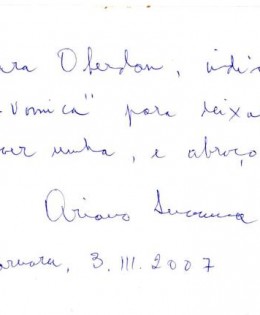 ara Oberdan, indi
-Vomica" para deixa
oer unha, e abraço
Ariano Suassuna
aruaru, 3.III.2007